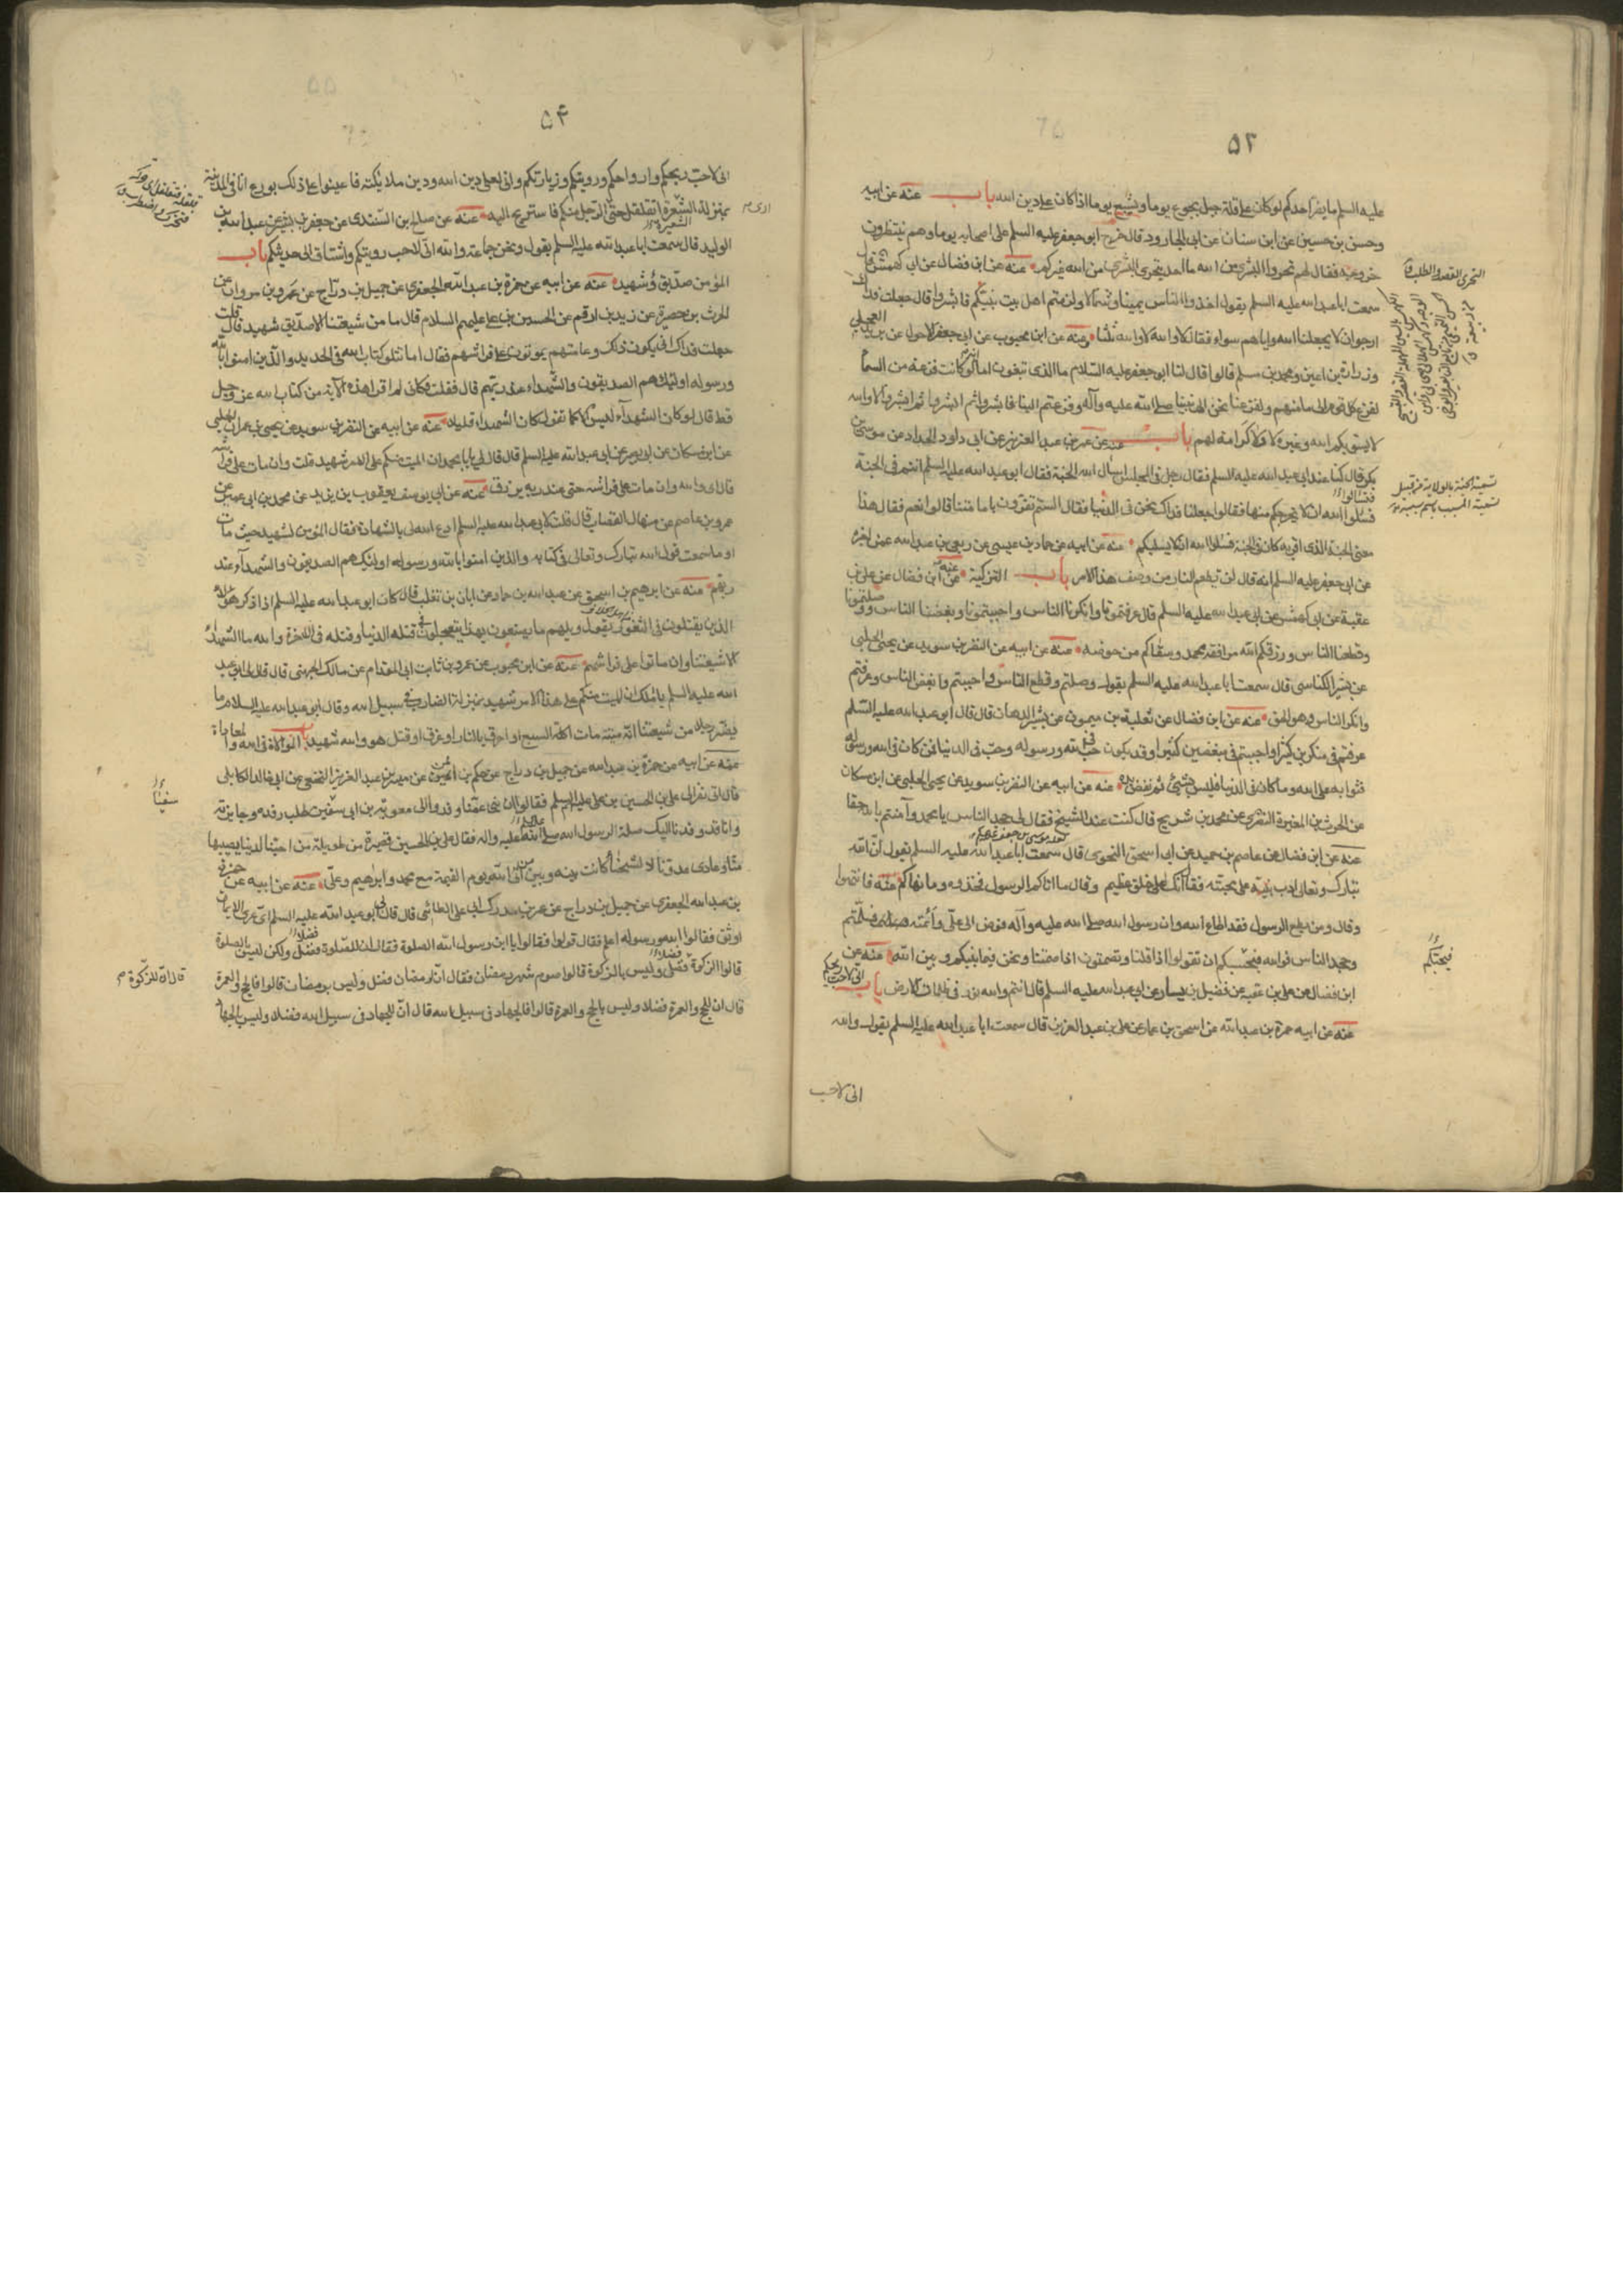 ٥٣
عليه السلم ما يضر احدكم لو كان على قلة جبل يجوع يوما ويشبع يوما اذا كان على دين الله باب عنه عن ابيه
وحسن بن حسين عن ابن سنان عن ابى الجارود قال خرج ابو جعفر عليه السلم على اصحابه يوما وهم ينتظرون
خروجه فقال لهم تحروا البشرى من الله ما احد يتحرى البشرى من الله غيركم عنه عن ابن فضال عن ابى كهمش قال
سمعت ابا عبد الله عليه السلم يقول اخذ الناس يمينا وشمالا ولزمتم اهل بيت نبيكم فابشروا قال جعلت فداك
ارجو ان لا يجعلنا الله واياهم سواء فقال لا والله لا والله ثلثا وعنه عن ابن محبوب عن ابى جعفر الاحول عن بريد العجلى
وزرارة بن اعين ومحمد بن مسلم قالوا قال لنا ابو جعفر عليه السلام ما الذى تبغون اما لو كانت فزعة من السما
لفزع كل قوم الى مأمنهم ولفزعنا نحن الى نبينا صلى الله عليه وآله وفزعتم الينا فابشروا ثم ابشروا ثم ابشروا لا والله
لا يسويكم الله وغيركم لا ولا كرامة لهم باب عنه عن عمر بن عبد العزيز عن ابى داود الحداد عن موسى بن
بكر قال كنا عند ابى عبد الله عليه السلم فقال رجل فى المجلس اسأل الله الجنة فقال ابو عبد الله عليه السلم انتم فى الجنة
فسلوا الله ان لا يخرجكم منها فقالوا جعلنا فداك نحن فى الدنيا فقال الستم تقرون بامامتنا قالوا نعم فقال هذا
معنى الجنة الذى اقر به كان فى الجنة فسلوا الله ان لا يسلبكم عنه عن ابيه عن حماد بن عيسى عن ربعى بن عبد الله عمن اخبره
عن ابى جعفر عليه السلم انه قال لن تطعم النار من وصف هذا الامر باب التزكية عنه عن ابن فضال عن على بن
عقبة عن ابى كهمش عن ابى عبد الله عليه السلم قال عرفتمونا وانكرنا الناس واحببتمونا وبغضنا الناس ووصلتمونا
وقطعنا الناس ورزقكم الله مرافقة محمد وسقاكم من حوضه عنه عن ابيه عن النضر بن سويد عن يحيى الحلبى
عن بشير الكناسى قال سمعت ابا عبد الله عليه السلم يقول وصلتم وقطع الناس واحببتم وابغض الناس وعرفتم
وانكر الناس وهو الحق عنه عن ابن فضال عن ثعلبة بن ميمون عن بشير الدهان قال قال ابو عبد الله عليه السلم
عرفتم فى منكرين كثيرا واحببتم فى مبغضين كثيرا وقد يكون حب فى الله ورسوله وحب فى الدنيا فمن كان فى الله ورسوله
فثوابه على الله وما كان فى الدنيا فليس بشئ ثم نفض يده عنه عن ابيه عن النضر بن سويد عن يحيى الحلبى عن ابن مسكان
عن الحرث بن المغيرة النضرى عن محمد بن شريح قال كنت عند الشيخ فقال لى جحد الناس يا محمد وآمنتم بالله حقا
عنه عن ابن فضال عن عاصم بن حميد عن ابى اسحق النحوى قال سمعت ابا عبد الله عليه السلم يقول ان الله
تبارك وتعالى ادب نبيه على محبته فقال انك لعلى خلق عظيم وقال ما اتاكم الرسول فخذوه وما نهاكم عنه فانتهوا
وقال ومن يطع الرسول فقد اطاع الله وان رسول الله صلى الله عليه وآله فوض الى على وأئمته فسلمتم
وجحد الناس فوالله فبحسبكم ان تقولوا اذا قلنا وتصمتون اذا صمتنا ونحن فيما بينكم وبين الله عنه عن
ابن فضال عن على بن عقبة عن فضيل بن يسار عن ابى عبد الله عليه السلم قال انتم والله نور فى ظلمات الارض باب
عنه عن ابيه حمزة بن عبد الله عن اسحق بن عمار عن على بن عبد العزيز قال سمعت ابا عبد الله عليه السلم يقول والله
انى لاحب
٥٤
انى لاحب ريحكم وارواحكم ورويتكم وزيارتكم وانى لعلى دين الله ودين ملايكته فاعينوا على ذلك بورع انا فى المدينة
بمنزلة الشعيرة اتقلقل حتى ارى الرجل منكم فاستريح اليه عنه عن صالح بن السندى عن جعفر بن بشير عن عبد الله بن
الوليد قال سمعت ابا عبد الله عليه السلم يقول ونحن جماعة والله انى لاحب رويتكم واشتاق الى حديثكم باب
المؤمن صديق وشهيد عنه عن ابيه عن حمزة بن عبد الله الجعفرى عن جميل بن دراج عن عمرو بن مروان عن
الحرث بن حصيرة عن زيد بن ارقم عن الحسين بن على عليهم السلام قال ما من شيعتنا الا صديق شهيد قال قلت
جعلت فداك انى يكون ذلك وعامتهم يموتون على فراشهم فقال اما تتلو كتاب الله فى الحديد والذين امنوا بالله
ورسوله اولئك هم الصديقون والشهداء عند ربهم قال فقلت فكانى لم اقرا هذه الآية من كتاب الله عز وجل
قط قال لو كان الشهداء ليس الا كما تقول كان الشهداء قليلا عنه عن ابيه عن النضر بن سويد عن يحيى بن عمران الحلبى
عن ابن مسكان عن ابى بصير عن ابى عبد الله عليه السلم قال قال لى يا با محمد ان الميت منكم على هذا الامر شهيد قلت وان مات على فراشه
قال اى والله وان مات على فراشه حى عند ربه يرزق عنه عن ابى يوسف يعقوب بن يزيد عن محمد بن ابى عمير عن
عمرو بن عاصم عن منهال القصاب قال قلت لابى عبد الله عليه السلم ادع الله لى بالشهادة فقال المؤمن لشهيد حيث مات
او ما سمعت قول الله تبارك وتعالى فى كتابه والذين امنوا بالله ورسوله اولئك هم الصديقون والشهداء عند
ربهم عنه عن ابرهيم بن اسحق عن عبد الله بن حماد عن ابان بن تغلب قال كان ابو عبد الله عليه السلم اذا ذكر هؤلاء
الذين يقتلون فى الثغور يقول ويلهم ما يصنعون بهذا يتعجلون قتلة الدنيا وقتلة فى الآخرة والله ما الشهداء
الا شيعتنا وان ماتوا على فراشهم عنه عن ابن محبوب عن عمرو بن ثابت ابى المقدام عن مالك الجهنى قال قال لى ابو عبد
الله عليه السلم يا مالك ان الميت منكم على هذا الامر شهيد بمنزلة الضارب فى سبيل الله وقال ابو عبد الله عليه السلام ما
يضر رجلا من شيعتنا اية ميتة مات اكله السبع او احرق بالنار او غرق او قتل هو والله شهيد باب الموالاة فى الله والمعاداة
عنه عن ابيه عن حمزة بن عبد الله عن جميل بن دراج عن حكم بن ايمن عن ميسر بن عبد العزيز النخعى عن ابى خالد الكابلى
قال اتى نفر الى على بن الحسين بن على عليهم السلم فقالوا ان بنى عمنا وفدوا الى معوية بن ابى سفين طلب رفده وجايزته
وانا قد وفدنا اليك صلة لرسول الله صلى الله عليه واله فقال على بن الحسين قصيرة من طويلة من احبنا لا لدنيا يصيبها
منا وعادى عدونا لا لشحناء كانت بينه وبينه اتى الله يوم القيمة مع محمد وابرهيم وعلى عنه عن ابيه عن حمزة
بن عبد الله الجعفرى عن جميل بن دراج عن عمر بن مدرك ابى على الطائى قال قال لى ابو عبد الله عليه السلم اى عرى الايمان
اوثق فقالوا الله ورسوله اعلم فقال قولوا فقالوا يا ابن رسول الله الصلوة فقال ان للصلوة فضلا ولكن ليس بالصلوة
قالوا الزكوة قال ان للزكوة فضلا وليس بالزكوة قالوا صوم شهر رمضان فقال ان لرمضان فضلا وليس برمضان قالوا فالحج والعمرة
قال ان للحج والعمرة فضلا وليس بالحج والعمرة قالوا فالجهاد فى سبيل الله قال ان للجهاد فى سبيل الله فضلا وليس بالجهاد